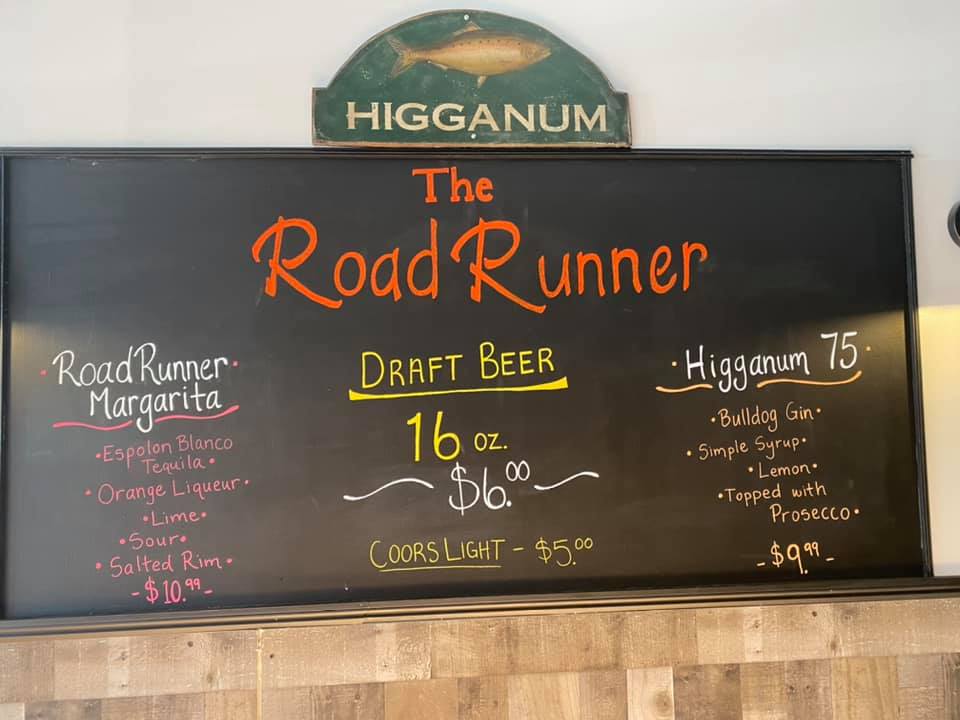 HIGGANUM
The
Road Runner
·Road Runner·
Margarita
•Espolon Blanco
Tequila•
•Orange Liqueur•
•Lime•
•Sour•
•Salted Rim•
-$10.99-
DRAFT BEER
16 oz.
$6.00
COORS LIGHT - $5.00
·Higganum 75·
•Bulldog Gin•
•Simple Syrup•
•Lemon•
•Topped with
Prosecco•
-$9.99-